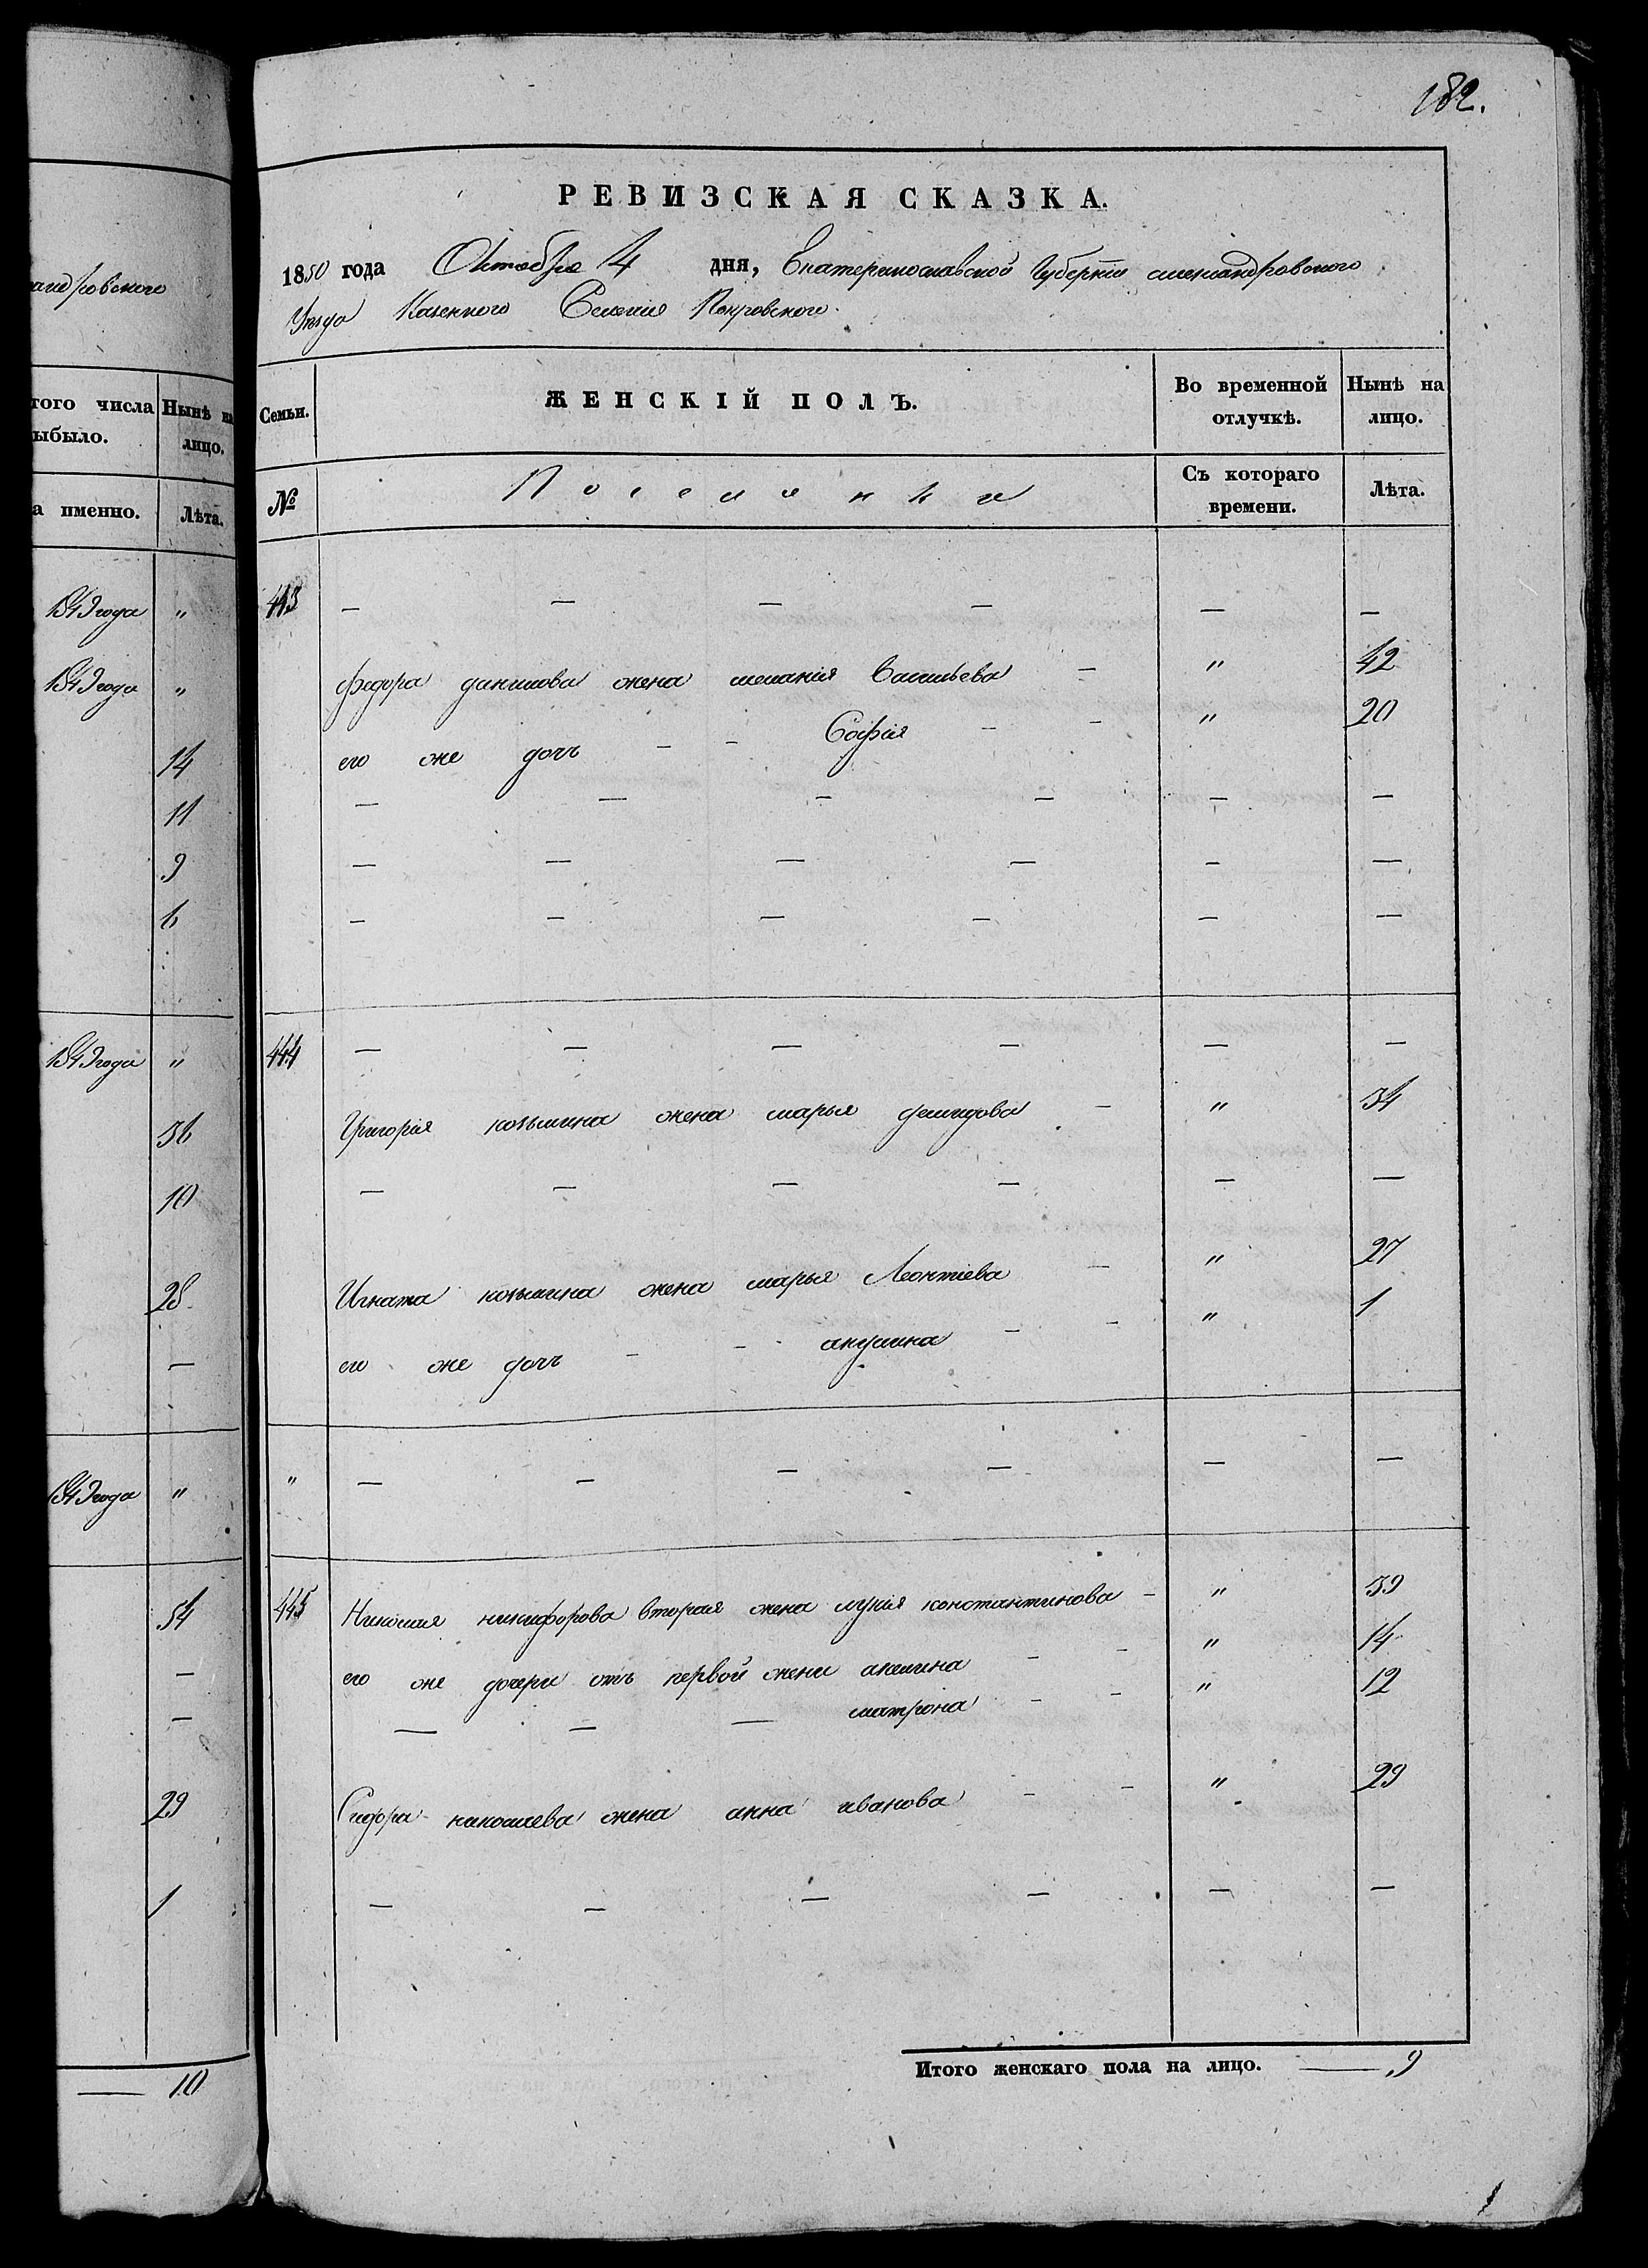 182.
андровского
того числа Нынѣ на
ыбыло. лицо.
а именно. Лѣта.
1849 года "
1849 года "
14
11
9
6
1849 года "
36
10
28
—
1849 года "
54
—
—
29
1
— 10
РЕВИЗСКАЯ СКАЗКА.
1850 года Октября 4 дня, Екатеринославской Губерніи александровского
Уезда Казенного Селенія Покровского.
Семьи. ЖЕНСКІЙ ПОЛЪ. Во временной отлучкѣ. Нынѣ на лицо.
№ Поселянки Съ котораго времени. Лѣта.
443 — — — — — —
Федора данилова жена меланія Васильева — " 42
его же дочь — — Софія — — " 20
— — — — — —
— — — — — —
— — — — — —
444 — — — — — —
Григорія козьмина жена марья демидова — " 34
— — — — — —
Игната козьмина жена марья Леонтіева — " 27
его же дочь — — акулина — — " 1
" — — — — — —
445 Николая никифорова вторая жена лукія константинова — " 39
его же дочери отъ первой жены акилина — — " 14
— — — матрона — — " 12
Сидора николаева жена анна иванова — — " 29
— — — — — —
Итого женскаго пола на лицо. — 9